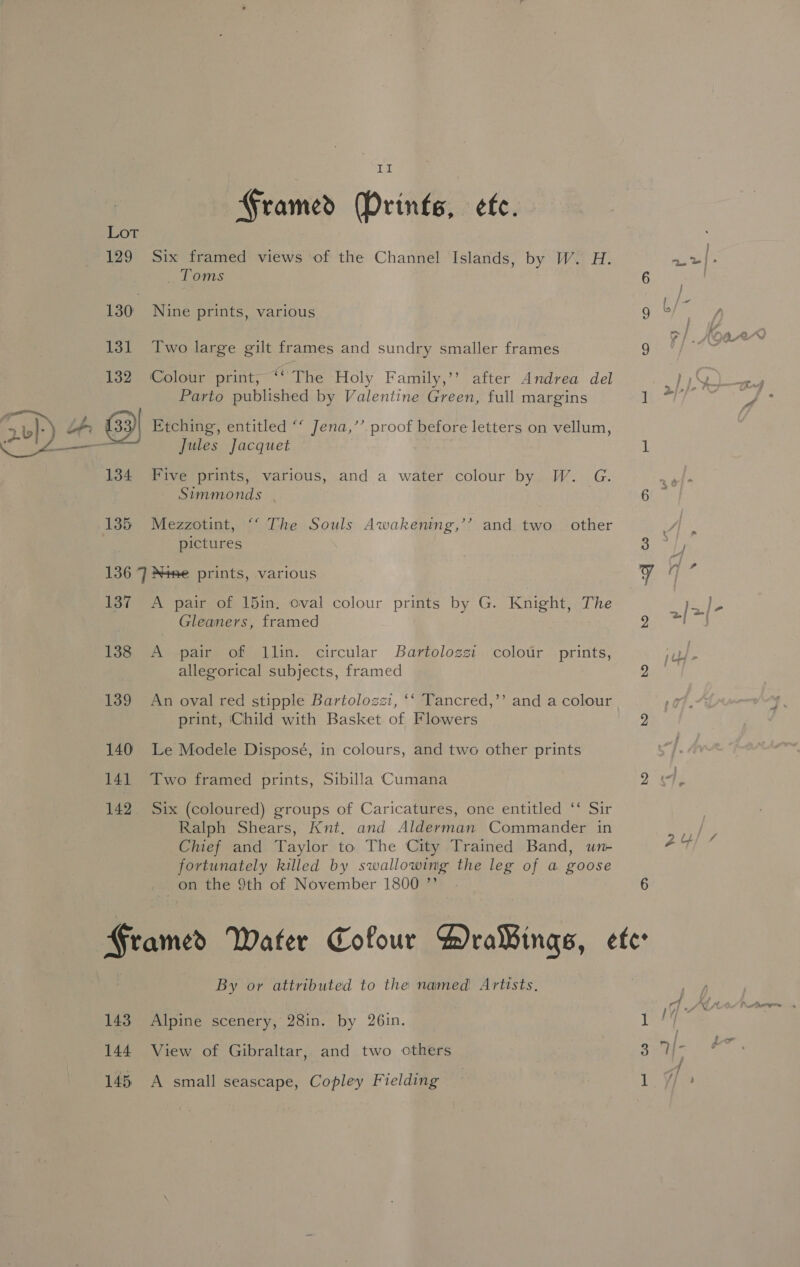 11
Framed Prints, etc.
Lot
129 Six framed views of the Channel Islands, by W. H.
Toms 6
130 Nine prints, various 9
131 Two large gilt frames and sundry smaller frames 9
132 Colour print, ‘‘ The Holy Family,’’ after Andrea del
Parto published by Valentine Green, full margins 1
133 Etching, entitled ‘‘ Jena,’’ proof before letters on vellum,
Jules Jacquet 1
134 Five prints, various, and a water colour by W. G.
Simmonds 6
135 Mezzotint, ‘‘ The Souls Awakening,’’ and two other
pictures 3
136 7 Nine prints, various 7
137 A pair of 15in. oval colour prints by G. Knight, The
Gleaners, framed 2
138 A pair of 11in. circular Bartolozzi colour prints,
allegorical subjects, framed 2
139 An oval red stipple Bartolozzi, ‘‘ Tancred,’’ and a colour
print, Child with Basket of Flowers 2
140 Le Modele Disposé, in colours, and two other prints
141 Two framed prints, Sibilla Cumana 2
142 Six (coloured) groups of Caricatures, one entitled ‘‘ Sir
Ralph Shears, Knt. and Alderman Commander in
Chief and Taylor to The City Trained Band, un-
fortunately killed by swallowing the leg of a goose
on the 9th of November 1800 ’’ 6
Framed Water Colour Drawings, etc.
By or attributed to the named Artists.
143 Alpine scenery, 28in. by 26in. 1
144 View of Gibraltar, and two others 3
145 A small seascape, Copley Fielding 1